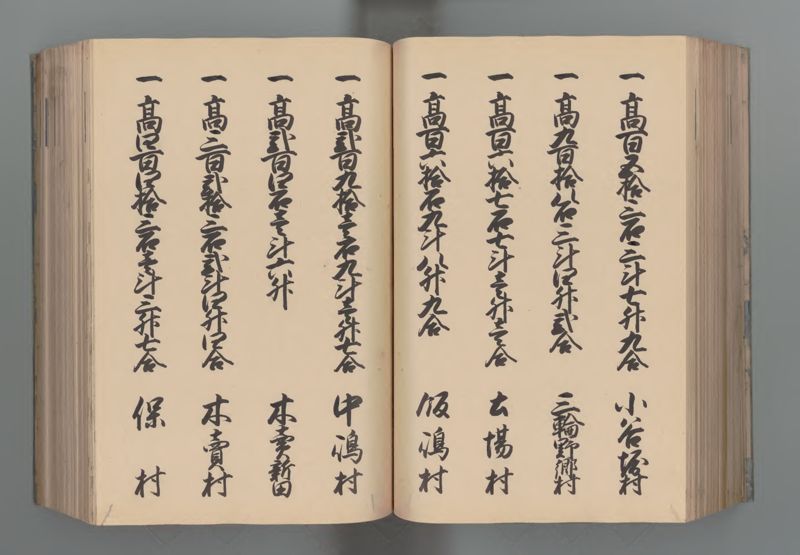 一 高百五拾三石三斗七升九合 小谷堀村
一 高九百拾八石三斗四升弐合 三輪野郷村
一 高百六拾七石七斗壱升壱合 土場村
一 高百六拾石九斗八升九合 飯嶋村
一 高弐百九拾壱石九斗壱升七合 中嶋村
一 高弐百四石壱斗六升 木賣新田
一 高三百弐拾三石弐斗四升四合 木賣村
一 高四百四拾三石壱斗三升七合 保村